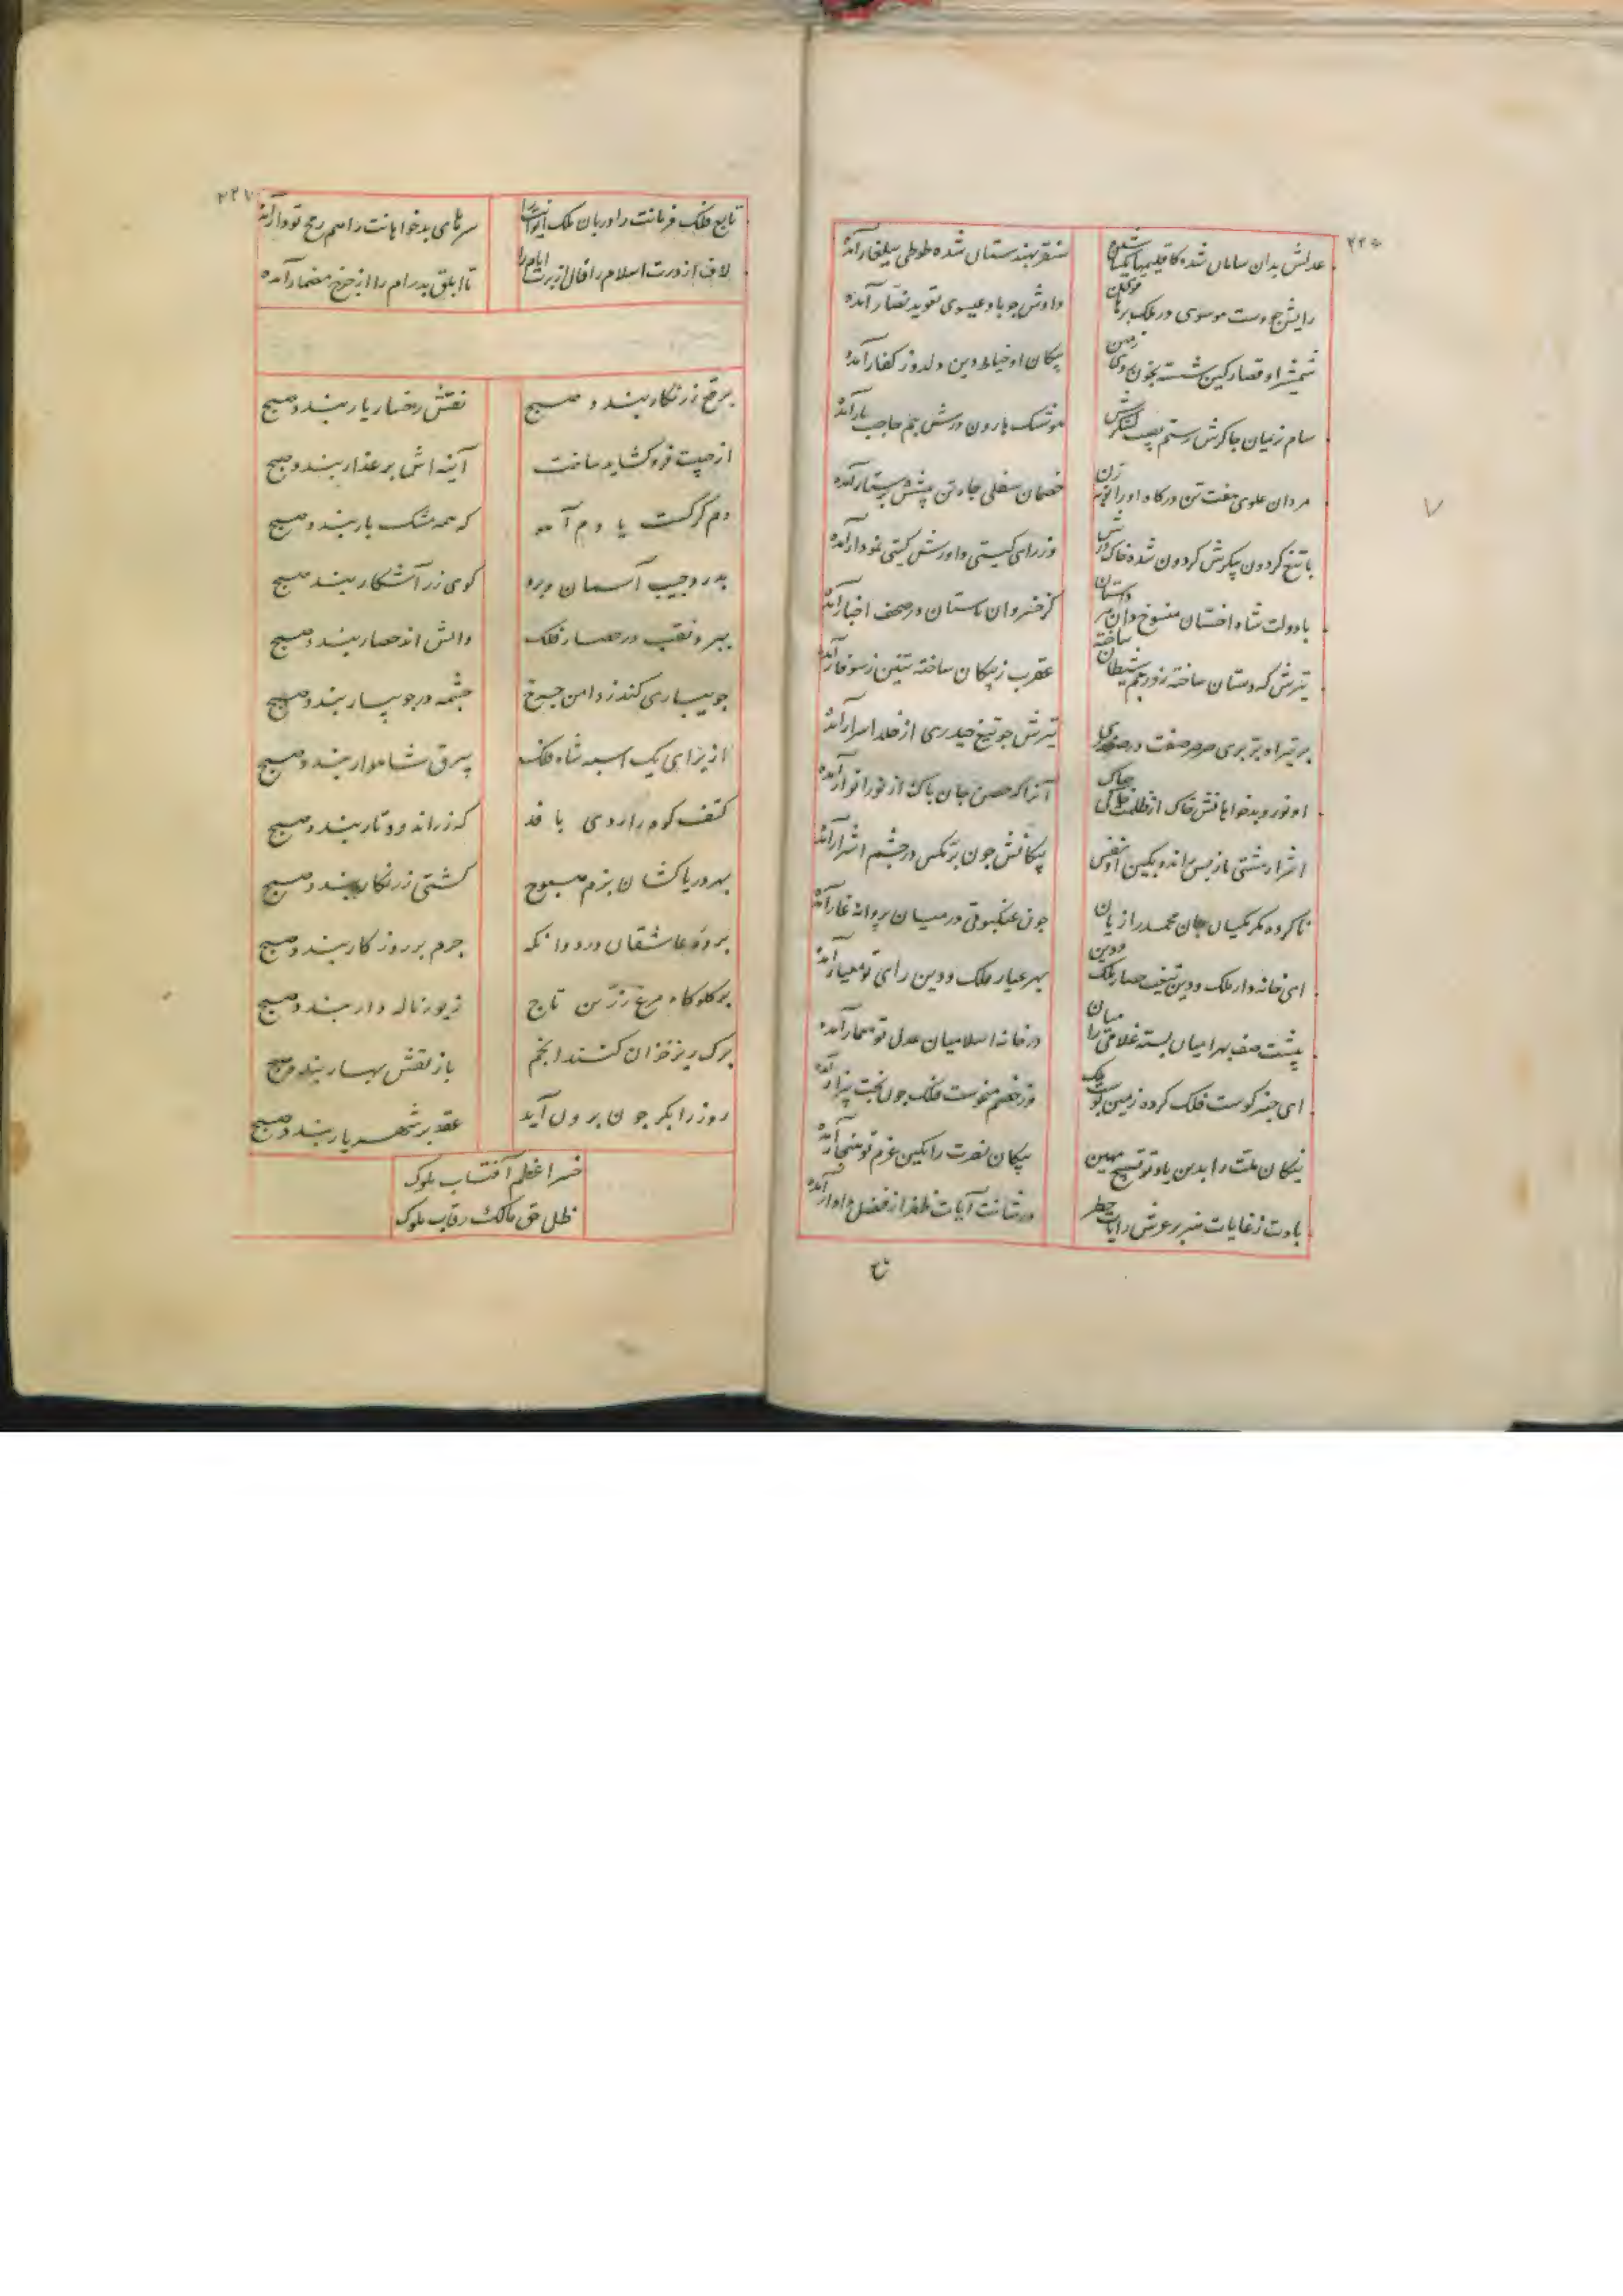 ۲۲۶
عدلش بدان سامان شده کاقلیمها یکسان شده
سنقر بهندستان شده طوطی ببلغار آمده
رایش چو دست موسوی در ملک برهان قوی
دادش چو باد عیسوی تعوید نصار آمده
شمشیر او قصار کین شسته بخون روی زمین
پیکان او خیاط دین دلدوز کفار آمده
سام نریمان چاکرش رستم نقیب لشکرش
هوشنک هارون درش جم حاجب بار آمده
مردان علوی هفت تن درکاه او را نوبه زن
خصمان سفلی چار تن پیشش پرستار آمده
با تیغ کردون پیکرش کردون شده خاک درش
وز رای کیتی داورش کیتی نمودار آمده
با دولت شاه اخستان منسوخ دان هر داستان
کز خسروان باستان در صحف اخبار آمده
تیرش که دستان ساخته زو رجم شیطان ساخته
عقرب ز پیکان ساخته تنین ز سوفار آمده
بر تیر او پری صرصر صفت در صفدری
تیرش چو تیغ حیدری از خلد اسرار آمده
او نور و بدخواهانش خاک از ظلمت خاکی چه باک
آنرا که حصن جان پاک از نور انوار آمده
اشرار مشتی باز پس رانده بکین او نفس
پیکانش چون پر مکس در چشم اشرار آمده
ناکرده مکر مکیان جان محمد را زیان
چون عنکبوتی در میان پروانه غار آمده
ای خانه دار ملک و دین تیغت حصار ملک و دین
بهر عیار ملک و دین رای تو معیار آمده
پیشت صف بهرامیان بسته غلامی را میان
در خانه اسلامیان عدل تو معمار آمده
ای چتر کوست فلک کرده زمین بوست ملک
وز خصم منحوست فلک چون بخت بیزار آمده
نیکان ملت را بدین یاد تو تسبیح مهین
پیکان نصرت را بکین عزم تو هنجار آمده
بادت ز غایات هنر بر عرش رایات خطر
در شانت آیات ظفر از فضل دادار آمده
تا
۲۲۷
تابع فلک فرمانت را دربان ملک ایوانت را
سرهای بدخواهانت را هم رمح تو دار آمده
لاف از درت اسلام را فال از برت ایام را
تا ابلق بدرام را از چرخ مضمار آمده
برقع زرنکار بندد صبح
نقش رخسار یار بندد صبح
از جیب فرو کشاید ساخت
آینه اش بر عذار بندد صبح
دم کرکست یا دم آهو
که همه مشک بار بندد صبح
بدرد جیب آسمان و برو
کوی زر آشکار بندد صبح
ببرد نقب در حصار فلک
و آتش اندر حصار بندد صبح
جویباری کند ز دامن چرخ
چشمه در جویبار بندد صبح
از برای یک اسبه شاه فلک
بیرق شاهوار بندد صبح
کتف کوه را ردی بافد
که زر اندود تار بندد صبح
بهر دریاکشان بزم صبوح
کشتی زرنکار بندد صبح
پرده عاشقان درد و آنکه
جرم بر روزکار بندد صبح
بر کلوکاه مرغ زرین تاج
زیور ناله دار بندد صبح
برک ریز خزان کنند انجم
باز نقش بهار بندد صبح
روز را بکر چون برون آید
عقد بر شهریار بندد صبح
خسرو اعظم آفتاب ملوک
ظل حق مالک رقاب ملوک